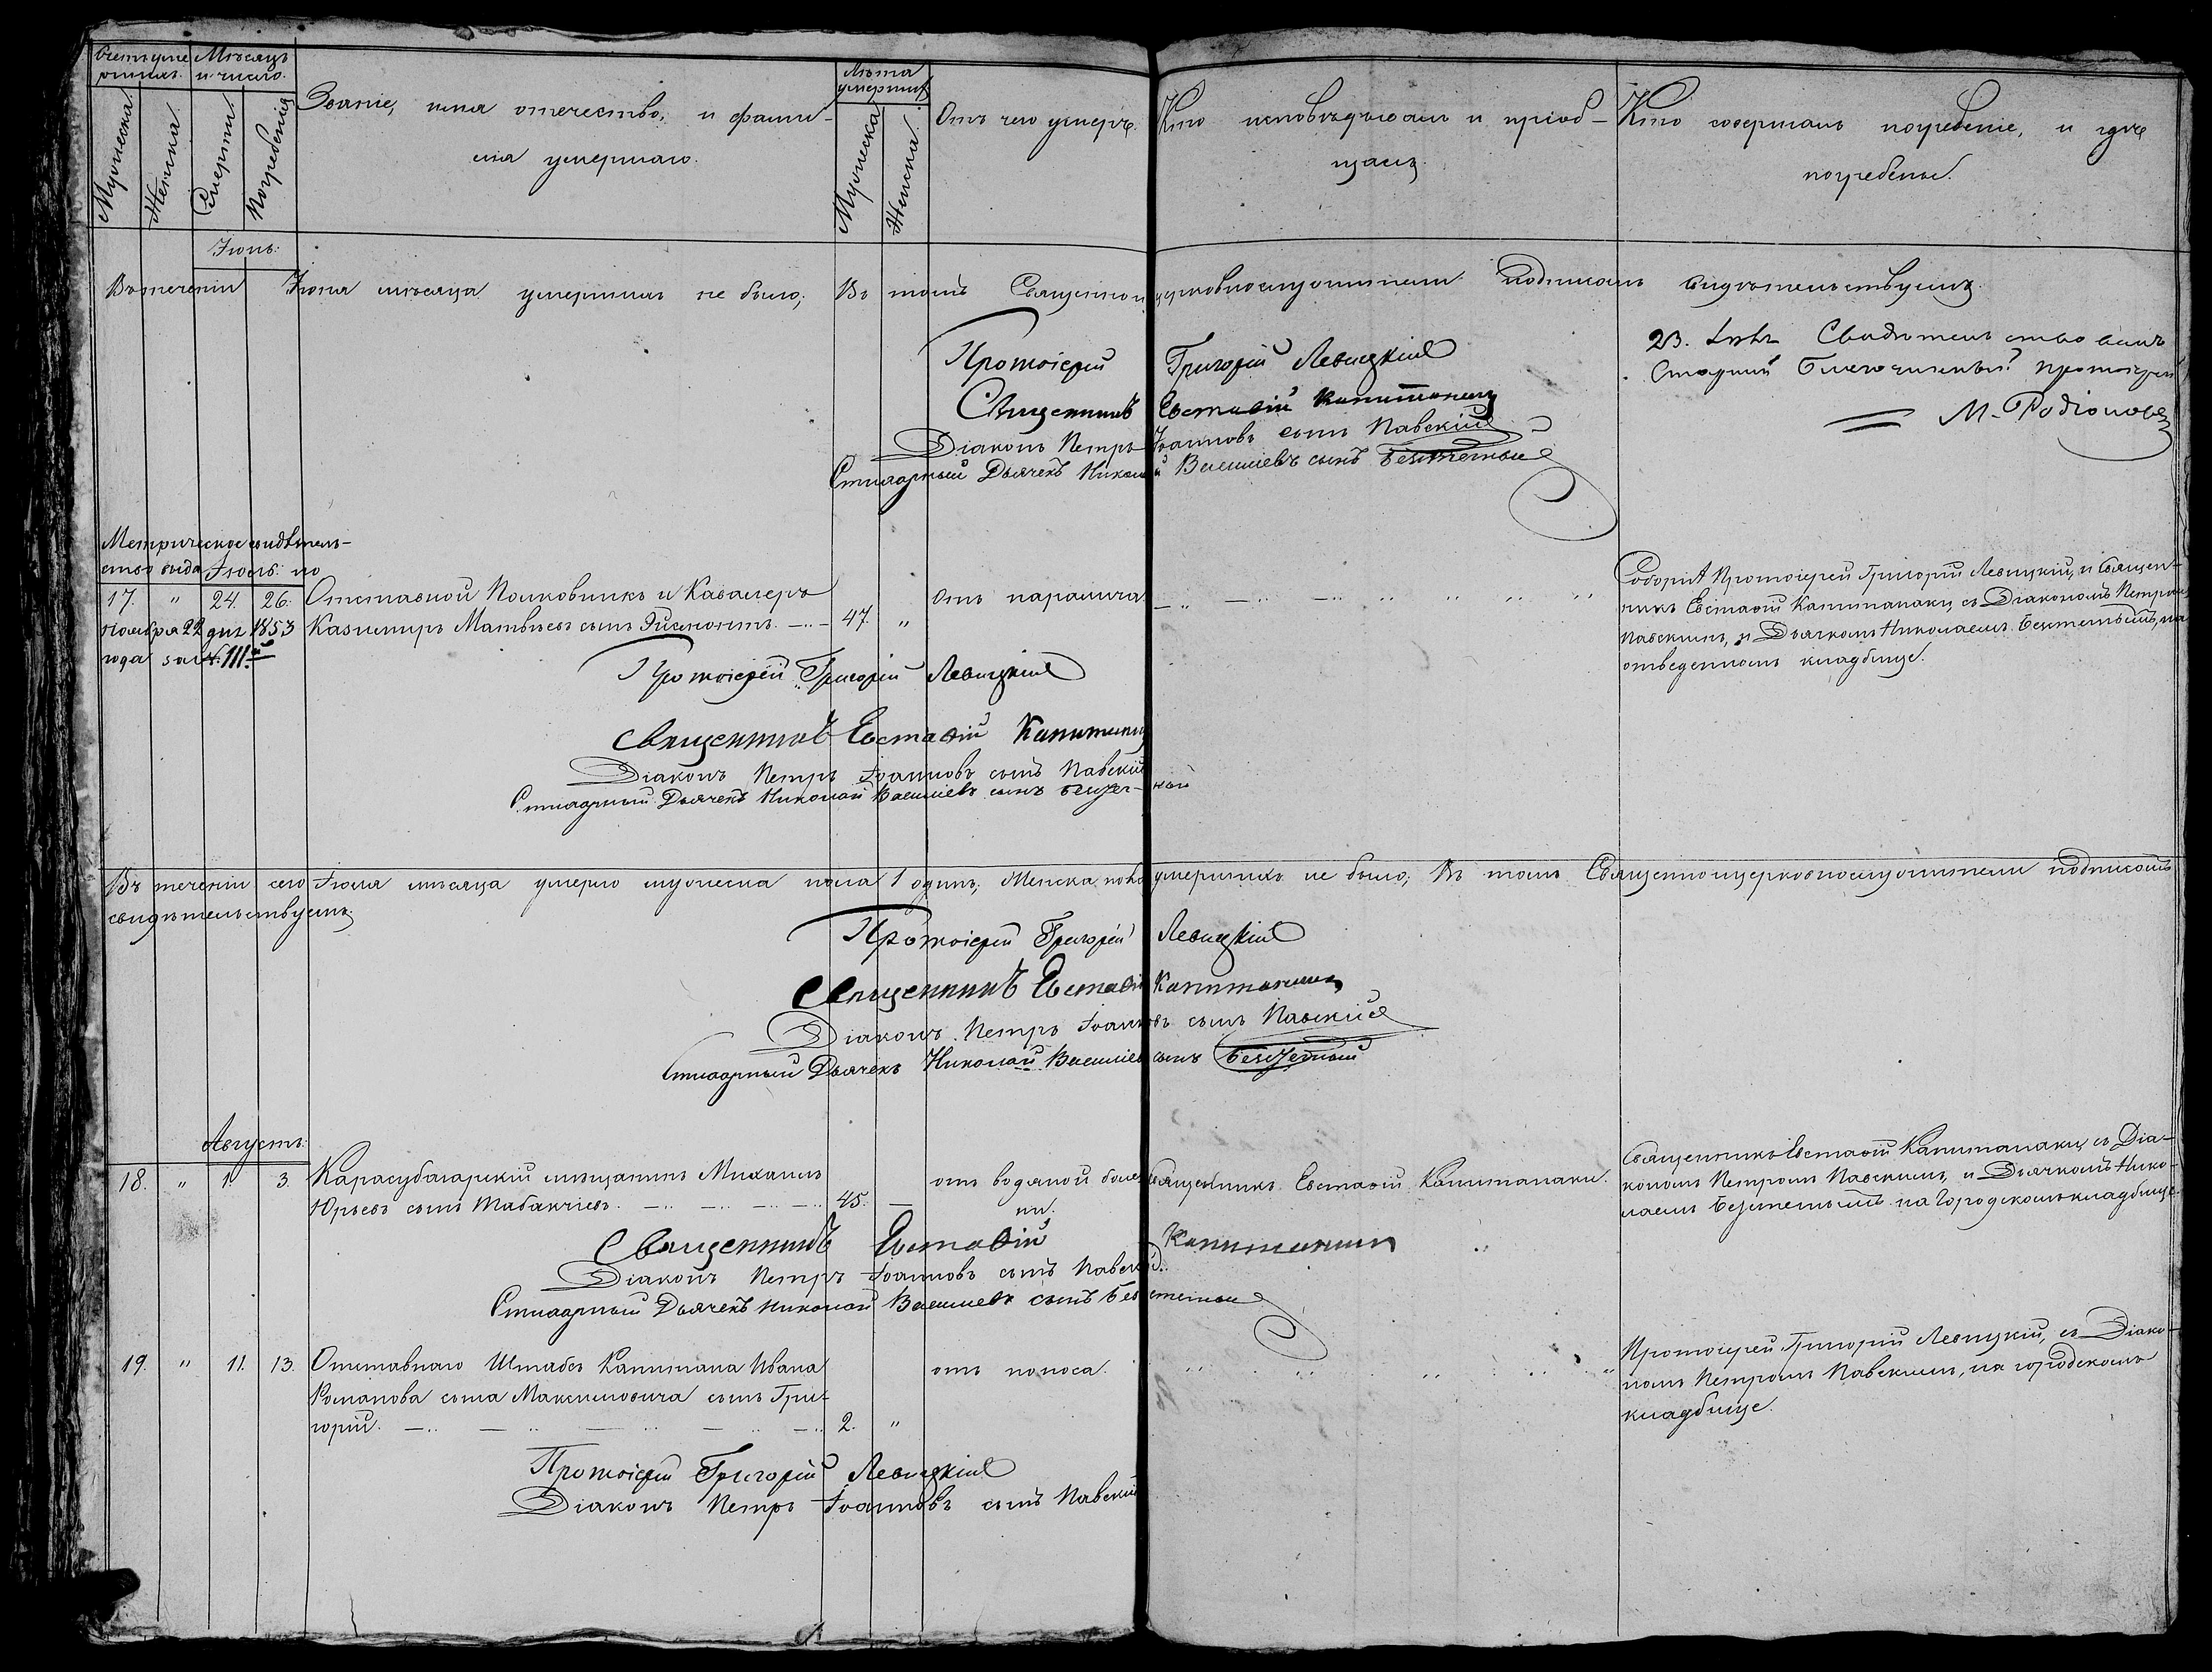 Счетъ умершихъ.
Мѣсяцъ и число.
Мужеска.
Женска.
Смерти.
Погребенія
Званіе, имя отечество, и фами-
лія умершаго.
Лѣта умерших
Мужеска
Женска.
Отъ чего умеръ.
Кто исповѣдывалъ и пріоб-
щалъ.
Кто совершалъ погребеніе, и гдѣ
погребены.
Іюнь:
Въ теченіи Іюня мѣсяца умершихъ не было; Въ томъ Священно и церковнослужители подписомъ свидѣтельствуемъ.
Протоіерей Григорій Левицкій
Священникъ Евстафій Капитанаки
Діаконъ Петръ Іоанновъ сынъ Павскій
Стихарный Дьячекъ Николай Васильевъ сынъ Безсчетный
23. Свидѣтельствовалъ
Старшій Благочинный протоіерей
М. Родіоновъ
Метрическое свидѣтель-
ство выда Іюль: но
17. " 24. 26. Отставной Полковникъ и Кавалеръ Отъ паралича
Ноября 22 дня 1853 Казимиръ Матвѣевъ сынъ 47. "
года за №. 111.й
Соборнѣ Протоіерей Григорій Левицкій, и Священ-
никъ Евстафій Капитанаки, съ Діакономъ Петромъ
Павскимъ, и Дьячкомъ Николаемъ Безсчетнымъ, на
отведенномъ кладбище.
Протоіерей Григорій Левицкій
Священникъ Евстафій Капитанаки
Діаконъ Петръ Іоанновъ сынъ Павскій
Стихарный Дьячекъ Николай Васильевъ сынъ Безсчет-ный
Въ теченіи сего Іюля мѣсяца умерло мужеска пола 1 одинъ; Женска пола умершихъ не было; Въ томъ Священноцерковнослужители подписомъ
свидѣтельствуемъ.
Протоіерей Григорій Левицкій
Священникъ Евстафій Капитанаки
Діаконъ Петръ Іоанновъ сынъ Павскій
Стихарный Дьячекъ Николай Васильевъ сынъ Безсчетный
Августъ:
18. " 1 3. Карасубазарскій мѣщанинъ Михаилъ отъ водяной болез Священникъ Евстафій Капитанаки.
Юрьевъ сынъ Табакчіевъ. 45. — ни.
Священникъ Евстафій Капитанаки съ Діа-
кономъ Петромъ Павскимъ, и Дьячкомъ Нико-
лаемъ Безсчетнымъ на Городскомъ кладбище.
Священникъ Евстафій Капитанаки
Діаконъ Петръ Іоанновъ сынъ Павскій.
Стихарный Дьячекъ Николай Васильевъ сынъ Безсчетный
19. " 11. 13. Отставнаго Штабсъ Капитана Ивана отъ поноса.
Романова сына Максимовича сынъ Гри-
горій. 2. "
Протоіерей Григорій Левицкій, съ Діако-
номъ Петромъ Павскимъ, на городскомъ
кладбище.
Протоіерей Григорій Левицкій
Діаконъ Петръ Іоанновъ сынъ Павскій